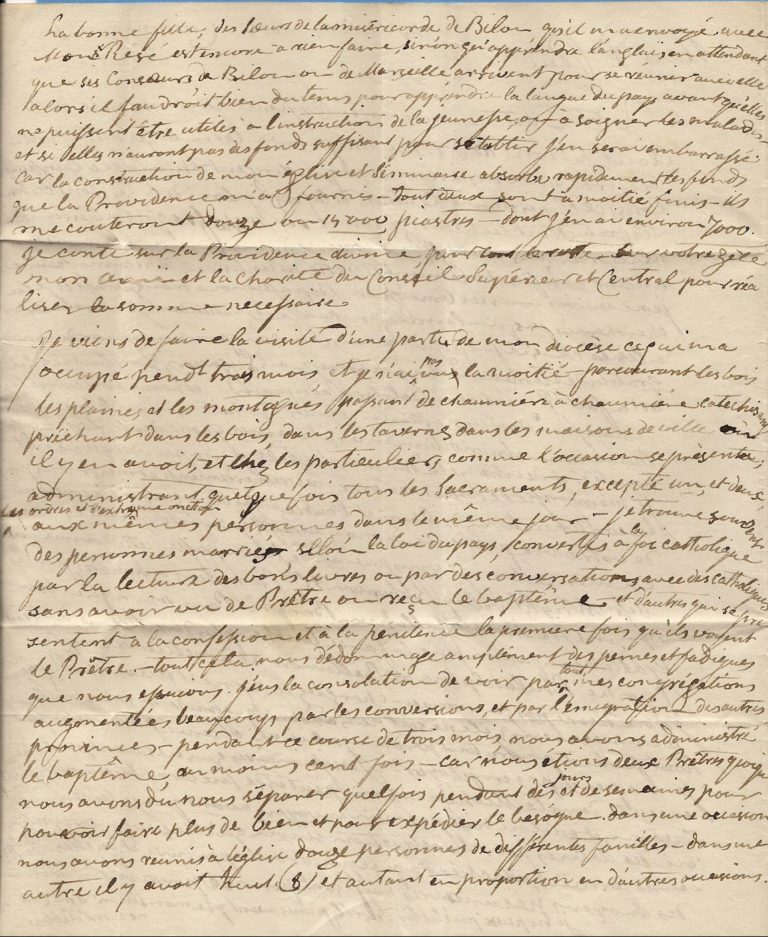 La bonne fille, des Sœurs de la misericorde de Bilom qu'il m'a envoyé avec
Mons Resé est encore à rien faire, sinon qu'apprendre l'anglais en attendant
que ses Consœurs de Bilom ou de Marseille arrivent pour se réunir avec elle
alors il faudroit bien du tems pour apprendre la langue du pays avant qu'elles
ne puissent être utiles à l'instruction de la jeunesse, ou à soigner les malades –
et si elles n'auront pas des fonds suffisant pour s'établir j'en serai embarrassé
car la construction de mon église et Séminaire absorbe rapidement les fonds
que la Providence m'a fournis – tout deux sont à moitié finis – ils
me couteront douze ou 15000 piastres – dont j'en ai environ 7000.
je conte sur la Providence divine pour tout le reste – sur votre zèle
mon ami et la charité du Conseil Supérieur et Central pour réa
liser la somme necessaire.
Je viens de faire la visite d'une partie de mon diocèse ce qui m'a
occupé pendt trois mois et je n'ai pas vu la moitié – parcourant les bois
les plaines, et les montagnes passant de chaumière à chaumière catechisant
prêchant dans les bois, dans les tavernes dans les maisons de ville où
il y en avoit, et chez les particuliers, comme l'occasion se présentoit,
administrant quelque fois tous les Sacraments, excepté un, et deux,
les ordres et l'extreme onction
aux mêmes personnes dans le même jour – je trouve souvent
des personnes mariés selon la loi du pays, convertis à la foi catholique
par la lecture des bons livres ou par des conversations avec des catholiques
sans avoir vu de Prêtre ou reçu le baptême – et d'autres qui se pré
sentent à la confession et à la pénitence la première fois qu'ils voient
le Prêtre. – tout cela nous dédommage amplement des peines et fadigues
que nous essuions. j'eus la consolation de voir partout mes congrégations
augmentées beaucoup par les conversions, et par l'émigration des autres
provinces – pendant ce course de trois mois nous avons administré
le baptême au moins cent fois – car nous étions deux Prêtres quoique
nous avons dû nous séparer quelfois pendant des jours et de semaines pour
pouvoir faire plus de bien et pour expédier le besogne. dans une occasion
nous avons reunis à l'église douze personnes de différentes familles – dans une
autre il y avoit huit (8) et autant en proportion en d'autres occasions.